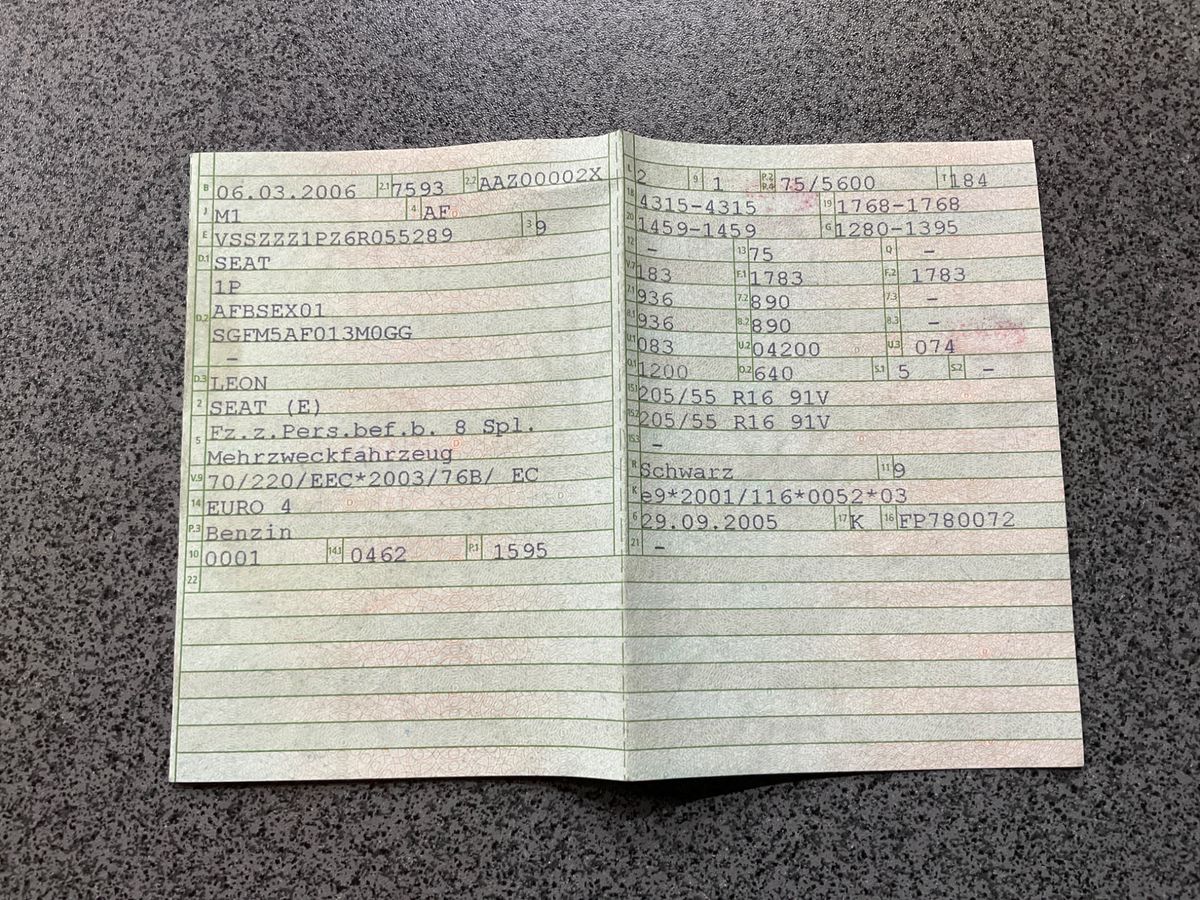 B 06.03.2006 2.1 7593 2.2 AAZ00002X
J M1 4 AF
E VSSZZZ1PZ6R055289 3 9
D.1 SEAT
1P
D.2 AFBSEX01
SGFM5AF013M0GG
-
D.3 LEON
2 SEAT (E)
5 Fz.z.Pers.bef.b. 8 Spl.
Mehrzweckfahrzeug
V.9 70/220/EEC*2003/76B/ EC
14 EURO 4
P.3 Benzin
10 0001 14.1 0462 P.1 1595
22
L 2 9 1 P.2 P.4 75/5600 T 184
18 4315-4315 19 1768-1768
20 1459-1459 G 1280-1395
12 - 13 75 Q -
V.7 183 F.1 1783 F.2 1783
7.1 936 7.2 890 7.3 -
8.1 936 8.2 890 8.3 -
U.1 083 U.2 04200 U.3 074
O.1 1200 O.2 640 S.1 5 S.2 -
15.1 205/55 R16 91V
15.2 205/55 R16 91V
15.3 -
R Schwarz 11 9
K e9*2001/116*0052*03
6 29.09.2005 17 K 16 FP780072
21 -